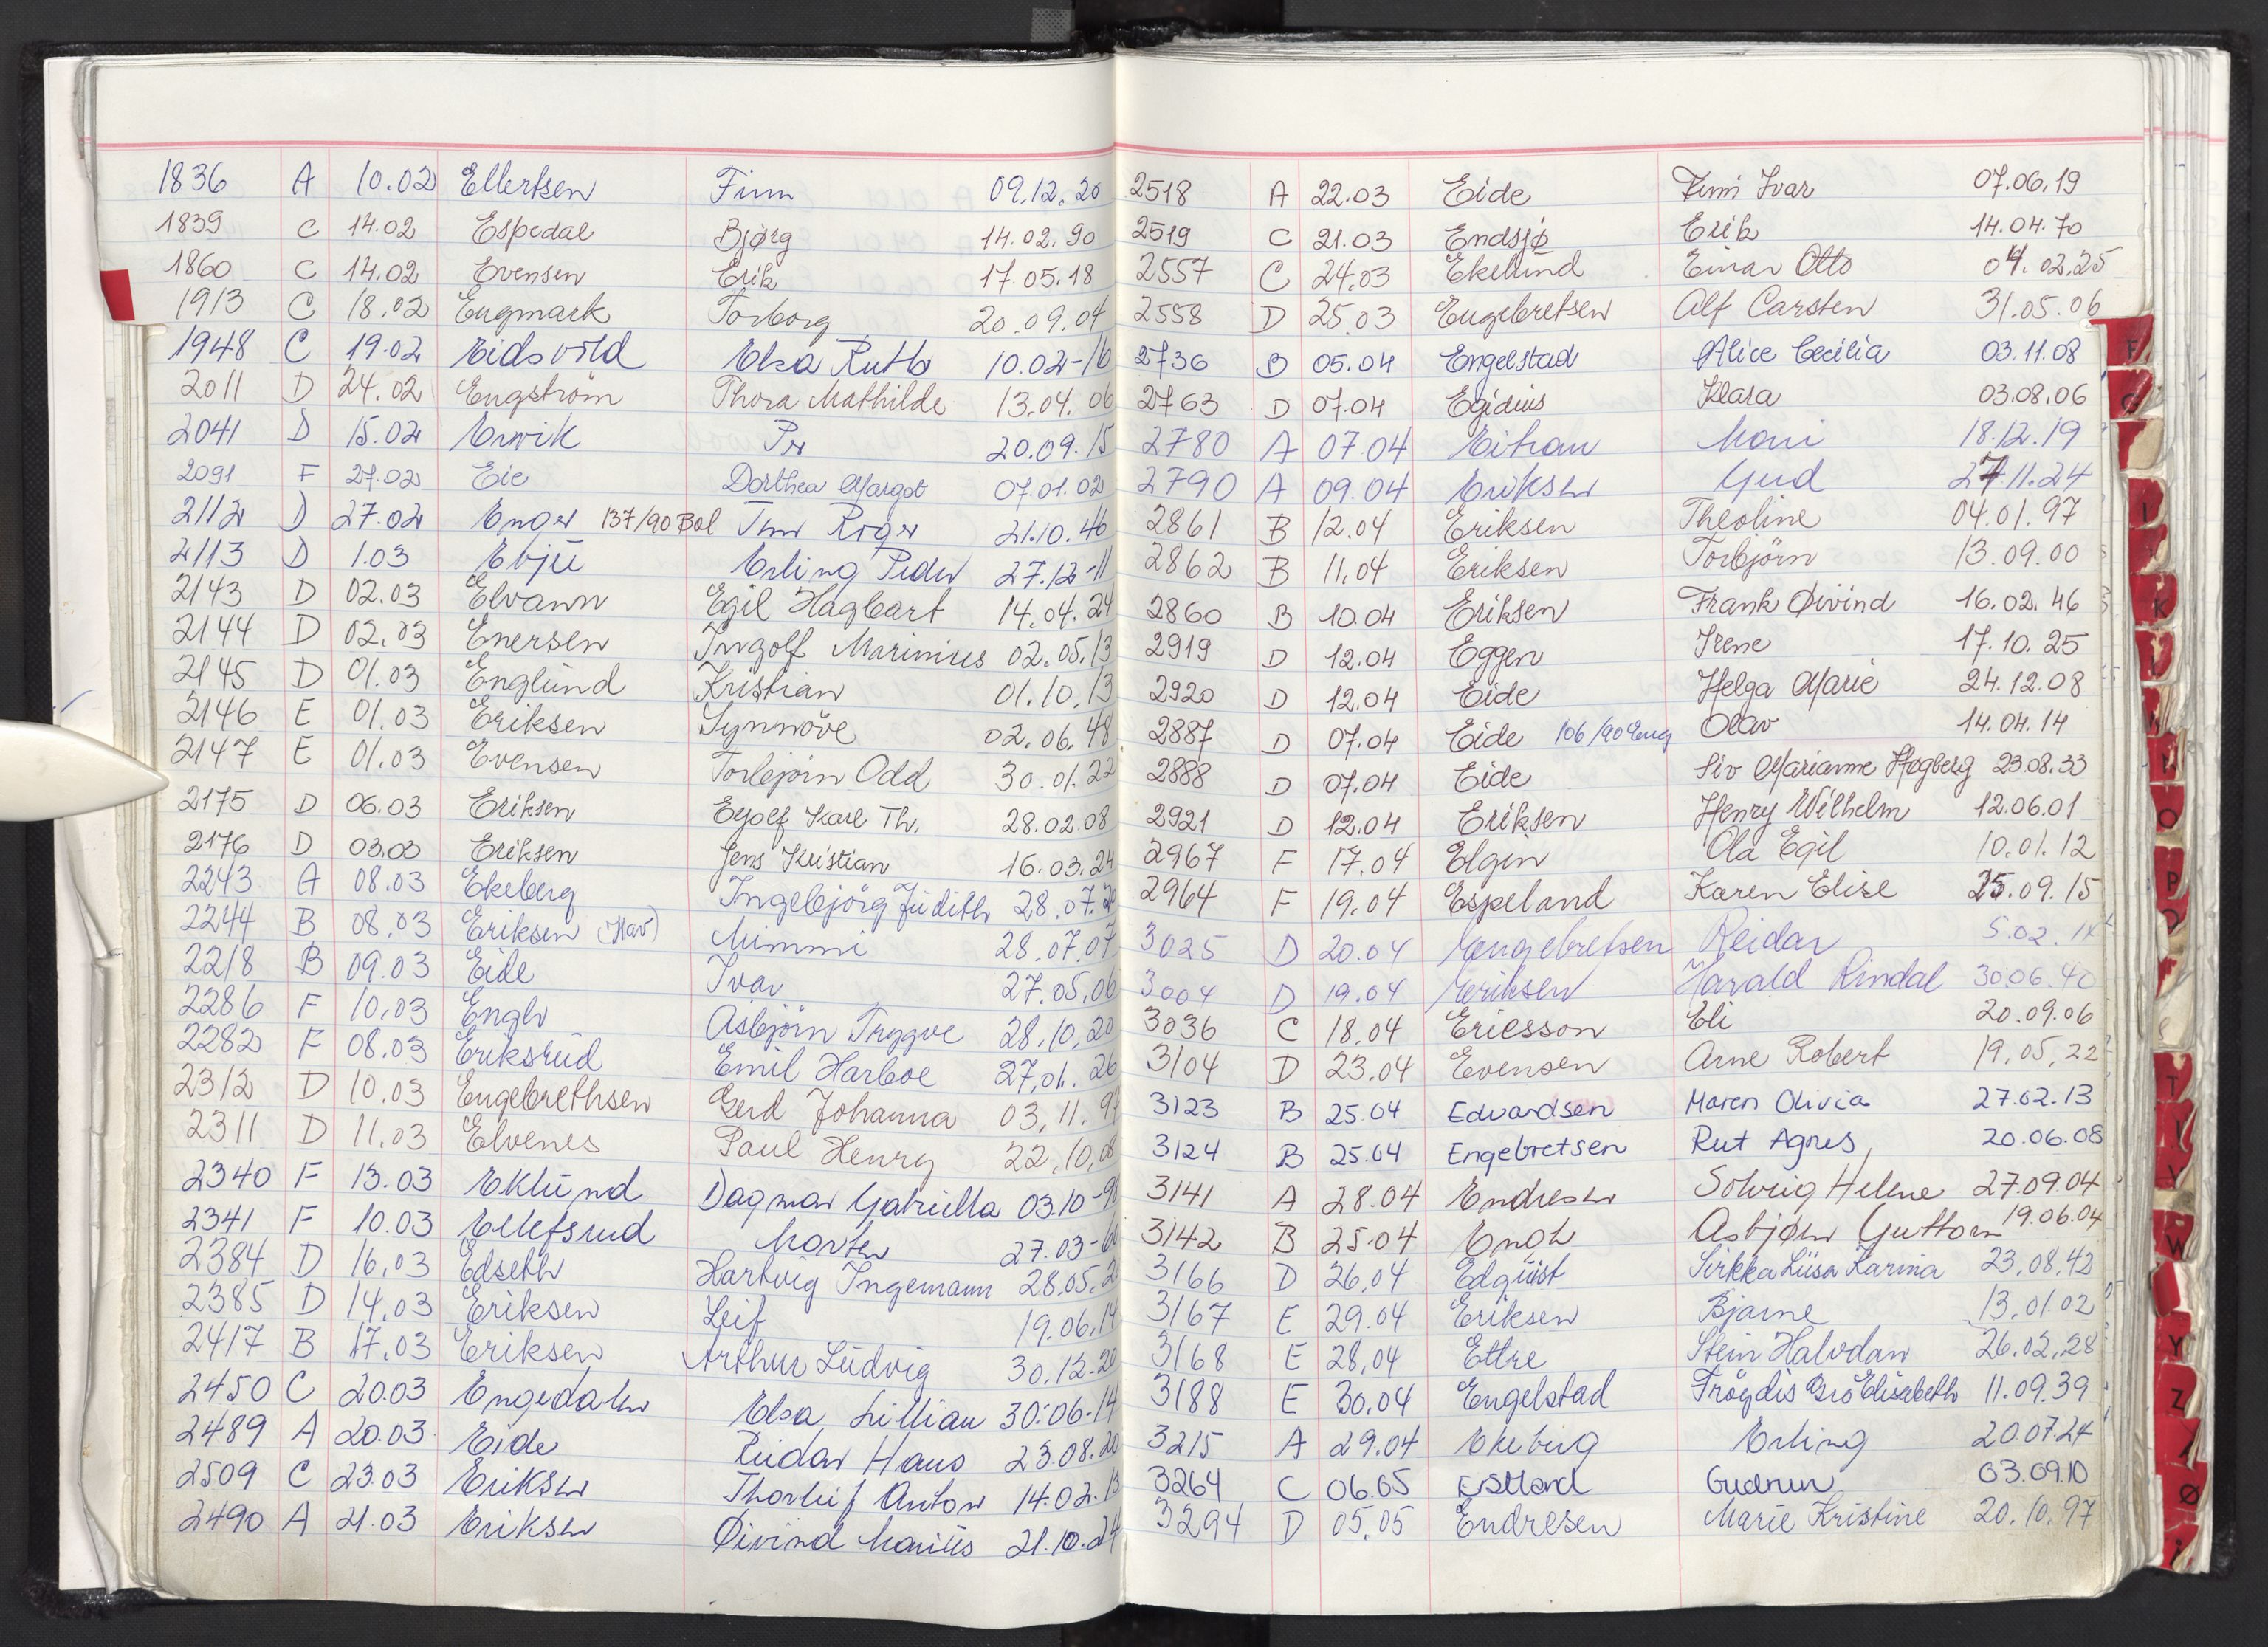 1836 A 10.02 Ellertsen Finn 09.12.20
1839 C 14.02 Espedal Bjørg 14.02.90
1860 C 14.02 Evensen Erik 17.05.18
1913 C 18.02 Engmark Torborg 20.09.04
1948 C 19.02 Eidsvold Elsa Ruth 10.02-16
2011 D 24.02 Engström Thora Mathilde 13.04.06
2041 D 15.02 Ervik Per 20.09.15
2091 F 27.02 Eie Dorthea Margot 07.01.02
2112 D 27.02 Enger 137/90 Bol Roger 21.10.46
2113 D 1.03 Evju Erling Peder 27.12-11
2143 D 02.03 Elvann Egil Hagbart 14.04.24
2144 D 02.03 Enersen Ingolf Marinius 02.05.13
2145 D 01.03 Englund Kristian 01.10.13
2146 E 01.03 Eriksen Synnöve 02.06.48
2147 E 01.03 Evensen Torbjörn Odd 30.01.22
2175 D 06.03 Eriksen Eyolf Karl Th. 28.02.08
2176 D 03.03 Eriksen Jens Kristian 16.03.24
2243 A 08.03 Ekeberg Ingebjörg Judith 28.07.20
2244 B 08.03 Eriksen (Hav) Mimmi 28.07.07
2218 B 09.03 Eide Ivar 27.05.06
2286 F 10.03 Engh Asbjörn Tryggve 28.10.20
2282 F 08.03 Eriksrud Emil Harboe 27.01.26
2312 D 10.03 Engebrethsen Gerd Johanna 03.11.97
2311 D 11.03 Elvenes Paul Henry 22.10.08
2340 F 13.03 Eklund Dagmar Gabriella 03.10-98
2341 F 10.03 Ellefsrud Morten 27.03-60
2384 D 16.03 Edseth Hartvig Ingemann 28.05.2
2385 D 14.03 Eriksen Leif 19.06.14
2417 B 17.03 Eriksen Arthur Ludvig 30.12.20
2450 C 20.03 Engedahl Elsa Lillian 30.06.14
2489 A 20.03 Eide Reidar Hans 23.08.20
2509 C 23.03 Eriksen Thorleif Anton 14.02.13
2490 A 21.03 Eriksen Øivind Marius 21.10.24
2518 A 22.03 Eide Finn Ivar 07.06.19
2519 C 21.03 Endsjø Erik 14.04.70
2557 C 24.03 Ekelund Einar Otto 04.02.25
2558 D 25.03 Engebretsen Alf Carsten 31.05.06
2736 B 05.04 Engelstad Alice Cecilia 03.11.08
2763 D 07.04 Egidius Klara 03.08.06
2780 A 07.04 Eitran 18.12.19
2790 A 09.04 Eriksen Gerd 27.11.24
2861 B 12.04 Eriksen Theoline 04.01.97
2862 B 11.04 Eriksen Torbjörn 13.09.00
2860 B 10.04 Eriksen Frank Øivind 16.02.46
2919 D 12.04 Eggen Irene 17.10.25
2920 D 12.04 Eide Helga Marie 24.12.08
2887 D 07.04 Eide 106/90 Eng Olav 14.04.14
2888 D 07.04 Eide Siv Marianne Høgberg 23.08.33
2921 D 12.04 Eriksen Henry Wilhelm 12.06.01
2967 F 17.04 Elgin Ola Egil 10.01.12
2964 F 19.04 Espeland Karen Elise 25.09.15
3025 D 20.04 Engebretsen Reidar 5.02.14
3004 D 19.04 Eriksen Harald Rindal 30.06.40
3036 C 18.04 Ericsson Eli 20.09.06
3104 D 23.04 Evensen Arne Robert 19.05.22
3123 B 25.04 Edvardsen Maren Olivia 27.02.13
3124 B 25.04 Engebretsen Rut Agnes 20.06.08
3141 A 28.04 Endresen Solveig Helene 27.09.04
3142 B 25.04 Engh Asbjørn Guttorm 19.06.04
3166 D 26.04 Edquist Sirkka Liisa Karina 23.08.42
3167 E 29.04 Eriksen Bjarne 13.01.02
3168 E 28.04 Ettre Stein Halvdan 26.02.28
3188 E 30.04 Engelstad Fröydis Gro Elisabeth 11.09.39
3215 A 29.04 Ekeberg Erling 20.07.24
3264 C 06.05 Gudrun 03.09.10
3294 D 05.05 Endresen Marie Kristine 20.10.97
F
G
I
K
N
O
P
T
V
W
Y
Z
Ø